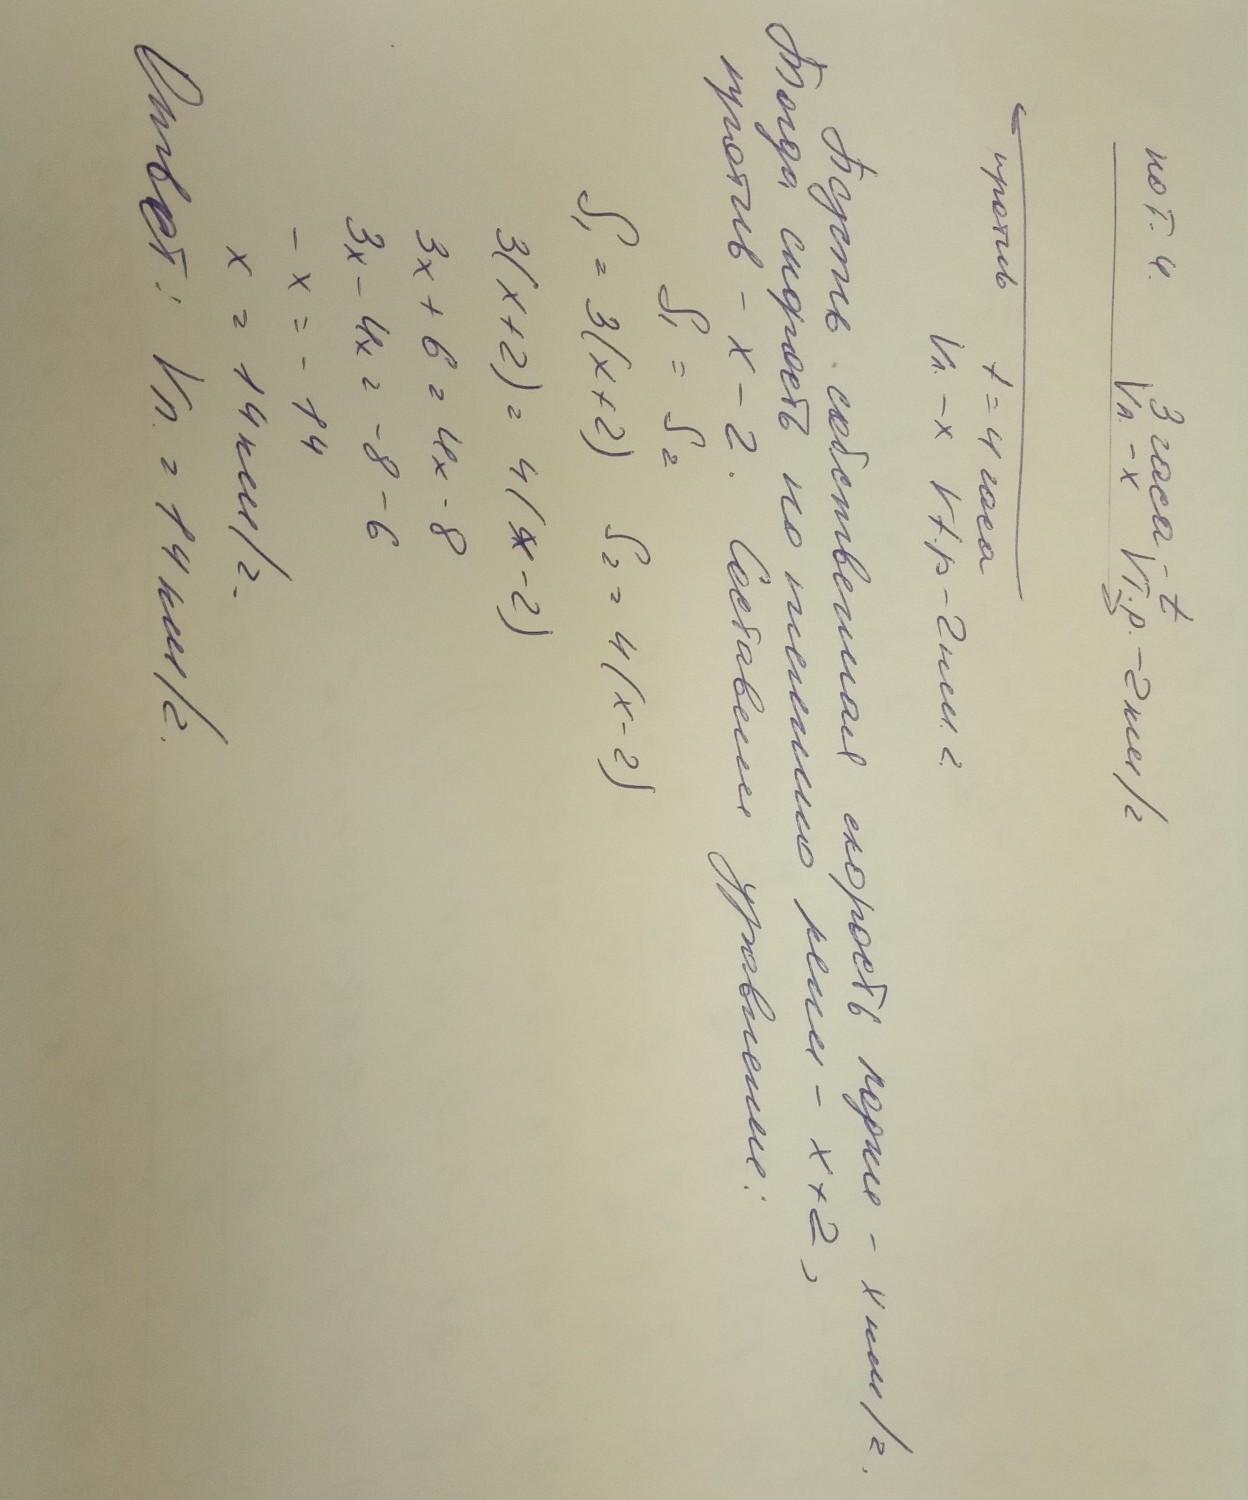 по т. ч.
3 часа - t
Vп. - x Vт.р. - 2 км/ч
против t = 4 часа
Vп. - x Vт.р - 2 км. ч.
Пусть собственная скорость лодки - x км/ч.
Тогда скорость по течению реки - x+2,
против - x - 2. Составим уравнение:
S₁ = S₂
S₁ = 3(x+2) S₂ = 4(x-2)
3(x+2) = 4(x-2)
3x + 6 = 4x - 8
3x - 4x = -8 - 6
- x = - 14
x = 14 км/ч.
Ответ: Vп. = 14 км/ч.